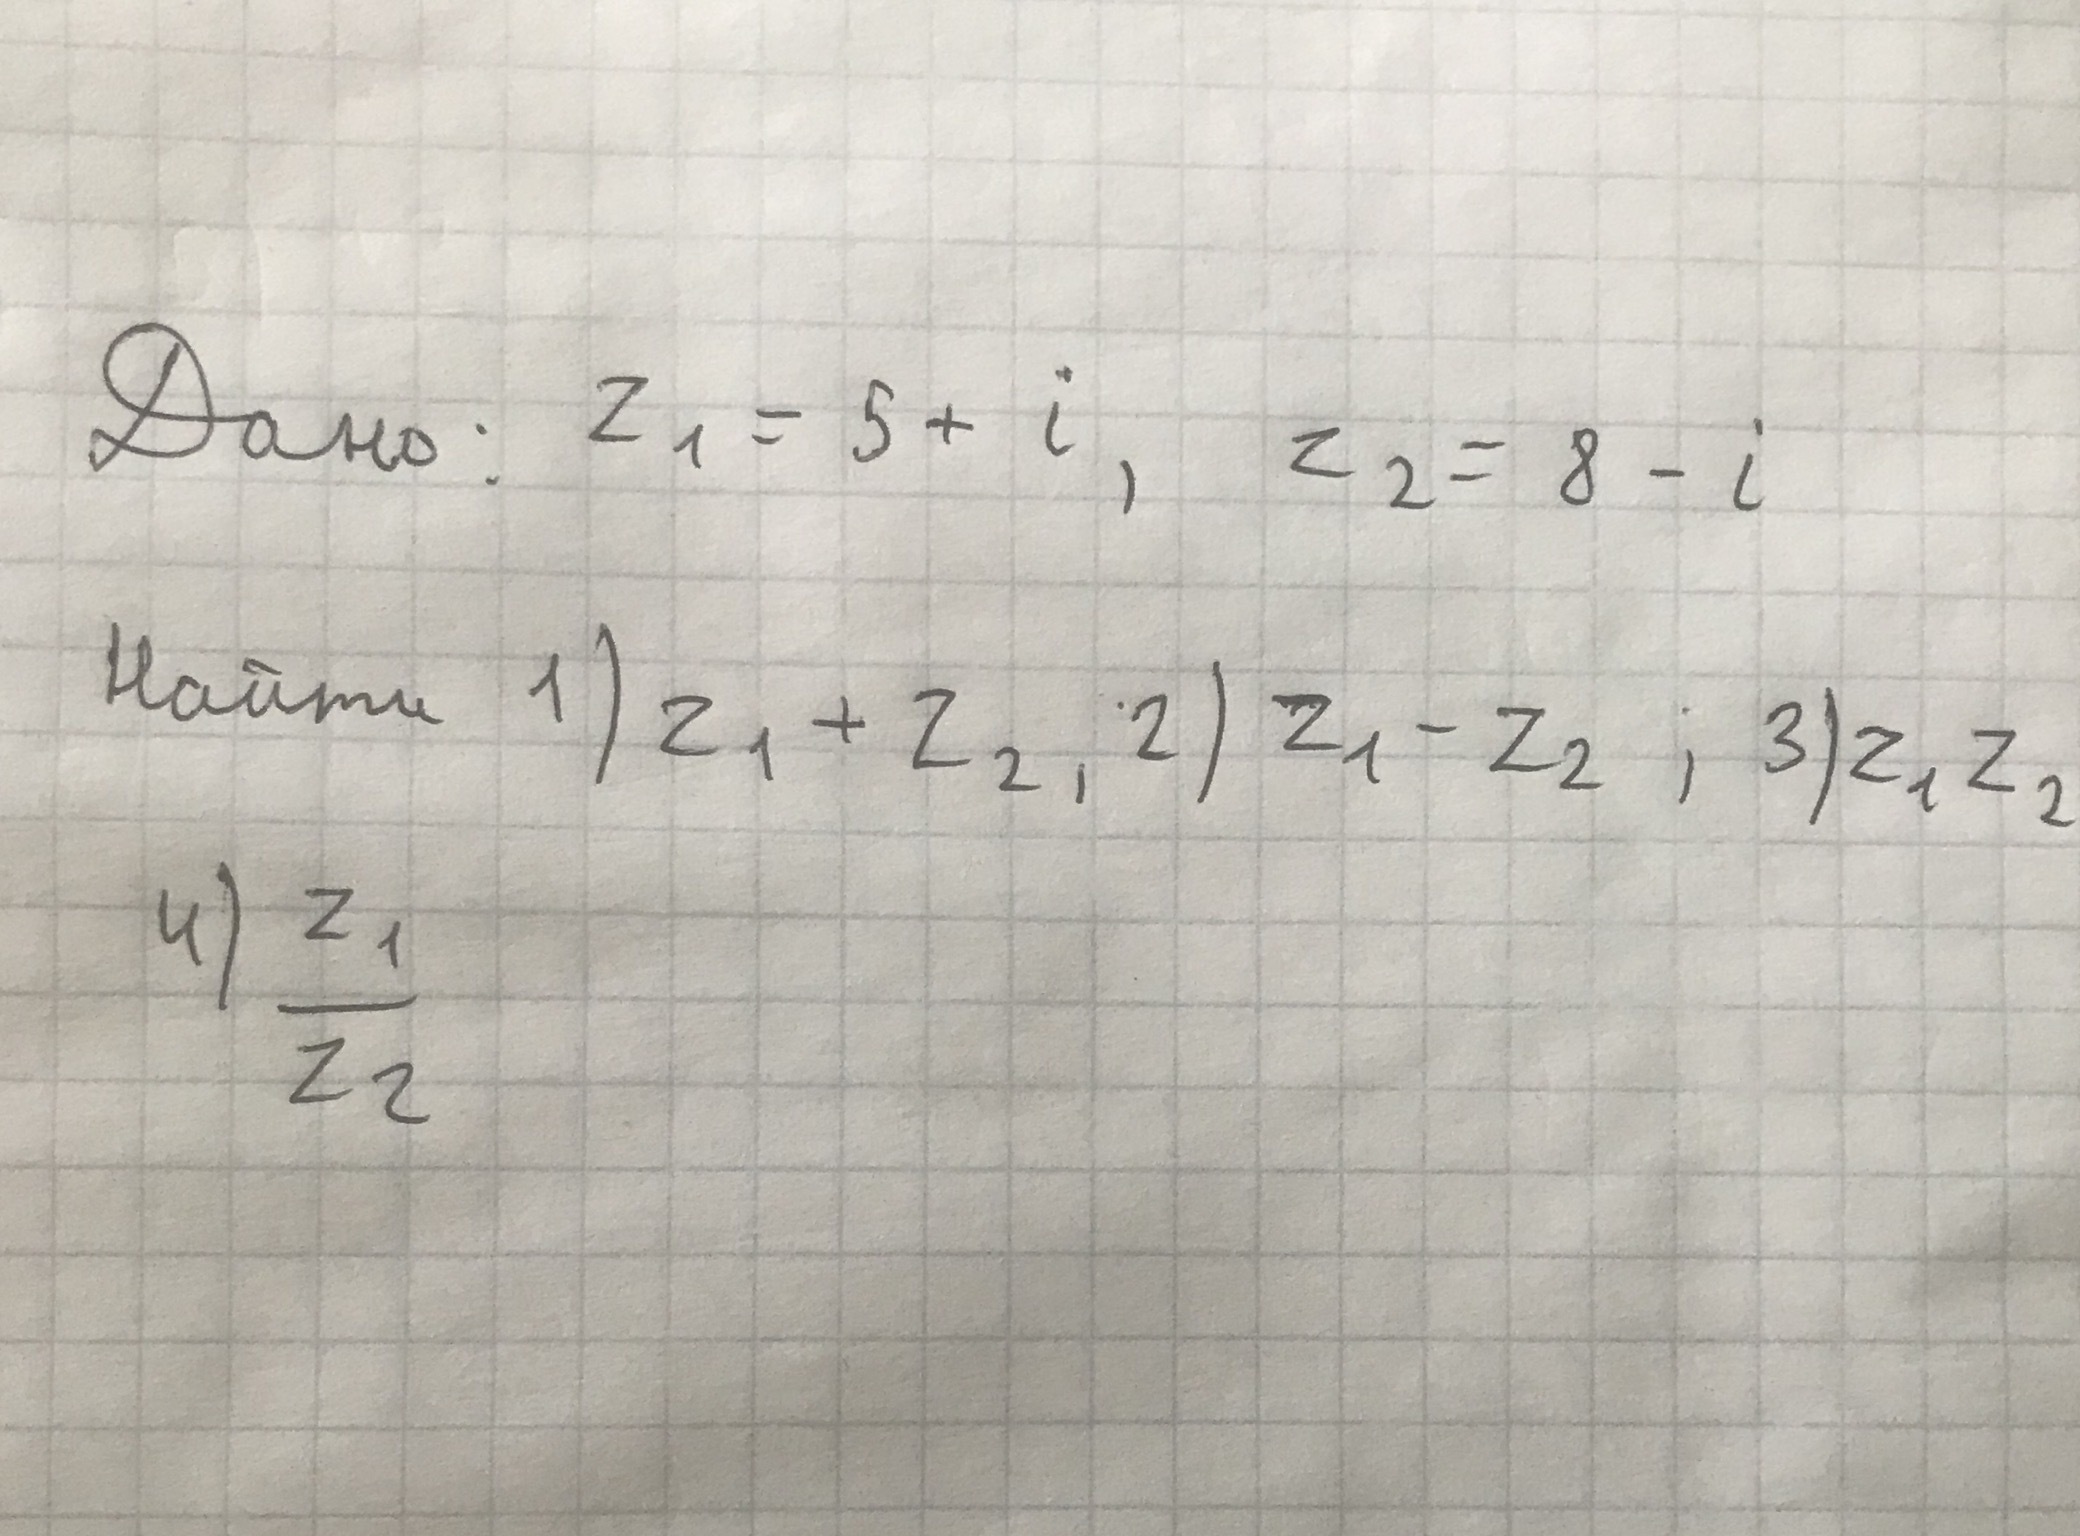 Дано: z₁ = 5 + i, z₂ = 8 - i
Найти 1) z₁ + z₂, 2) z₁ - z₂ ; 3) z₁ z₂
4) z₁
z₂